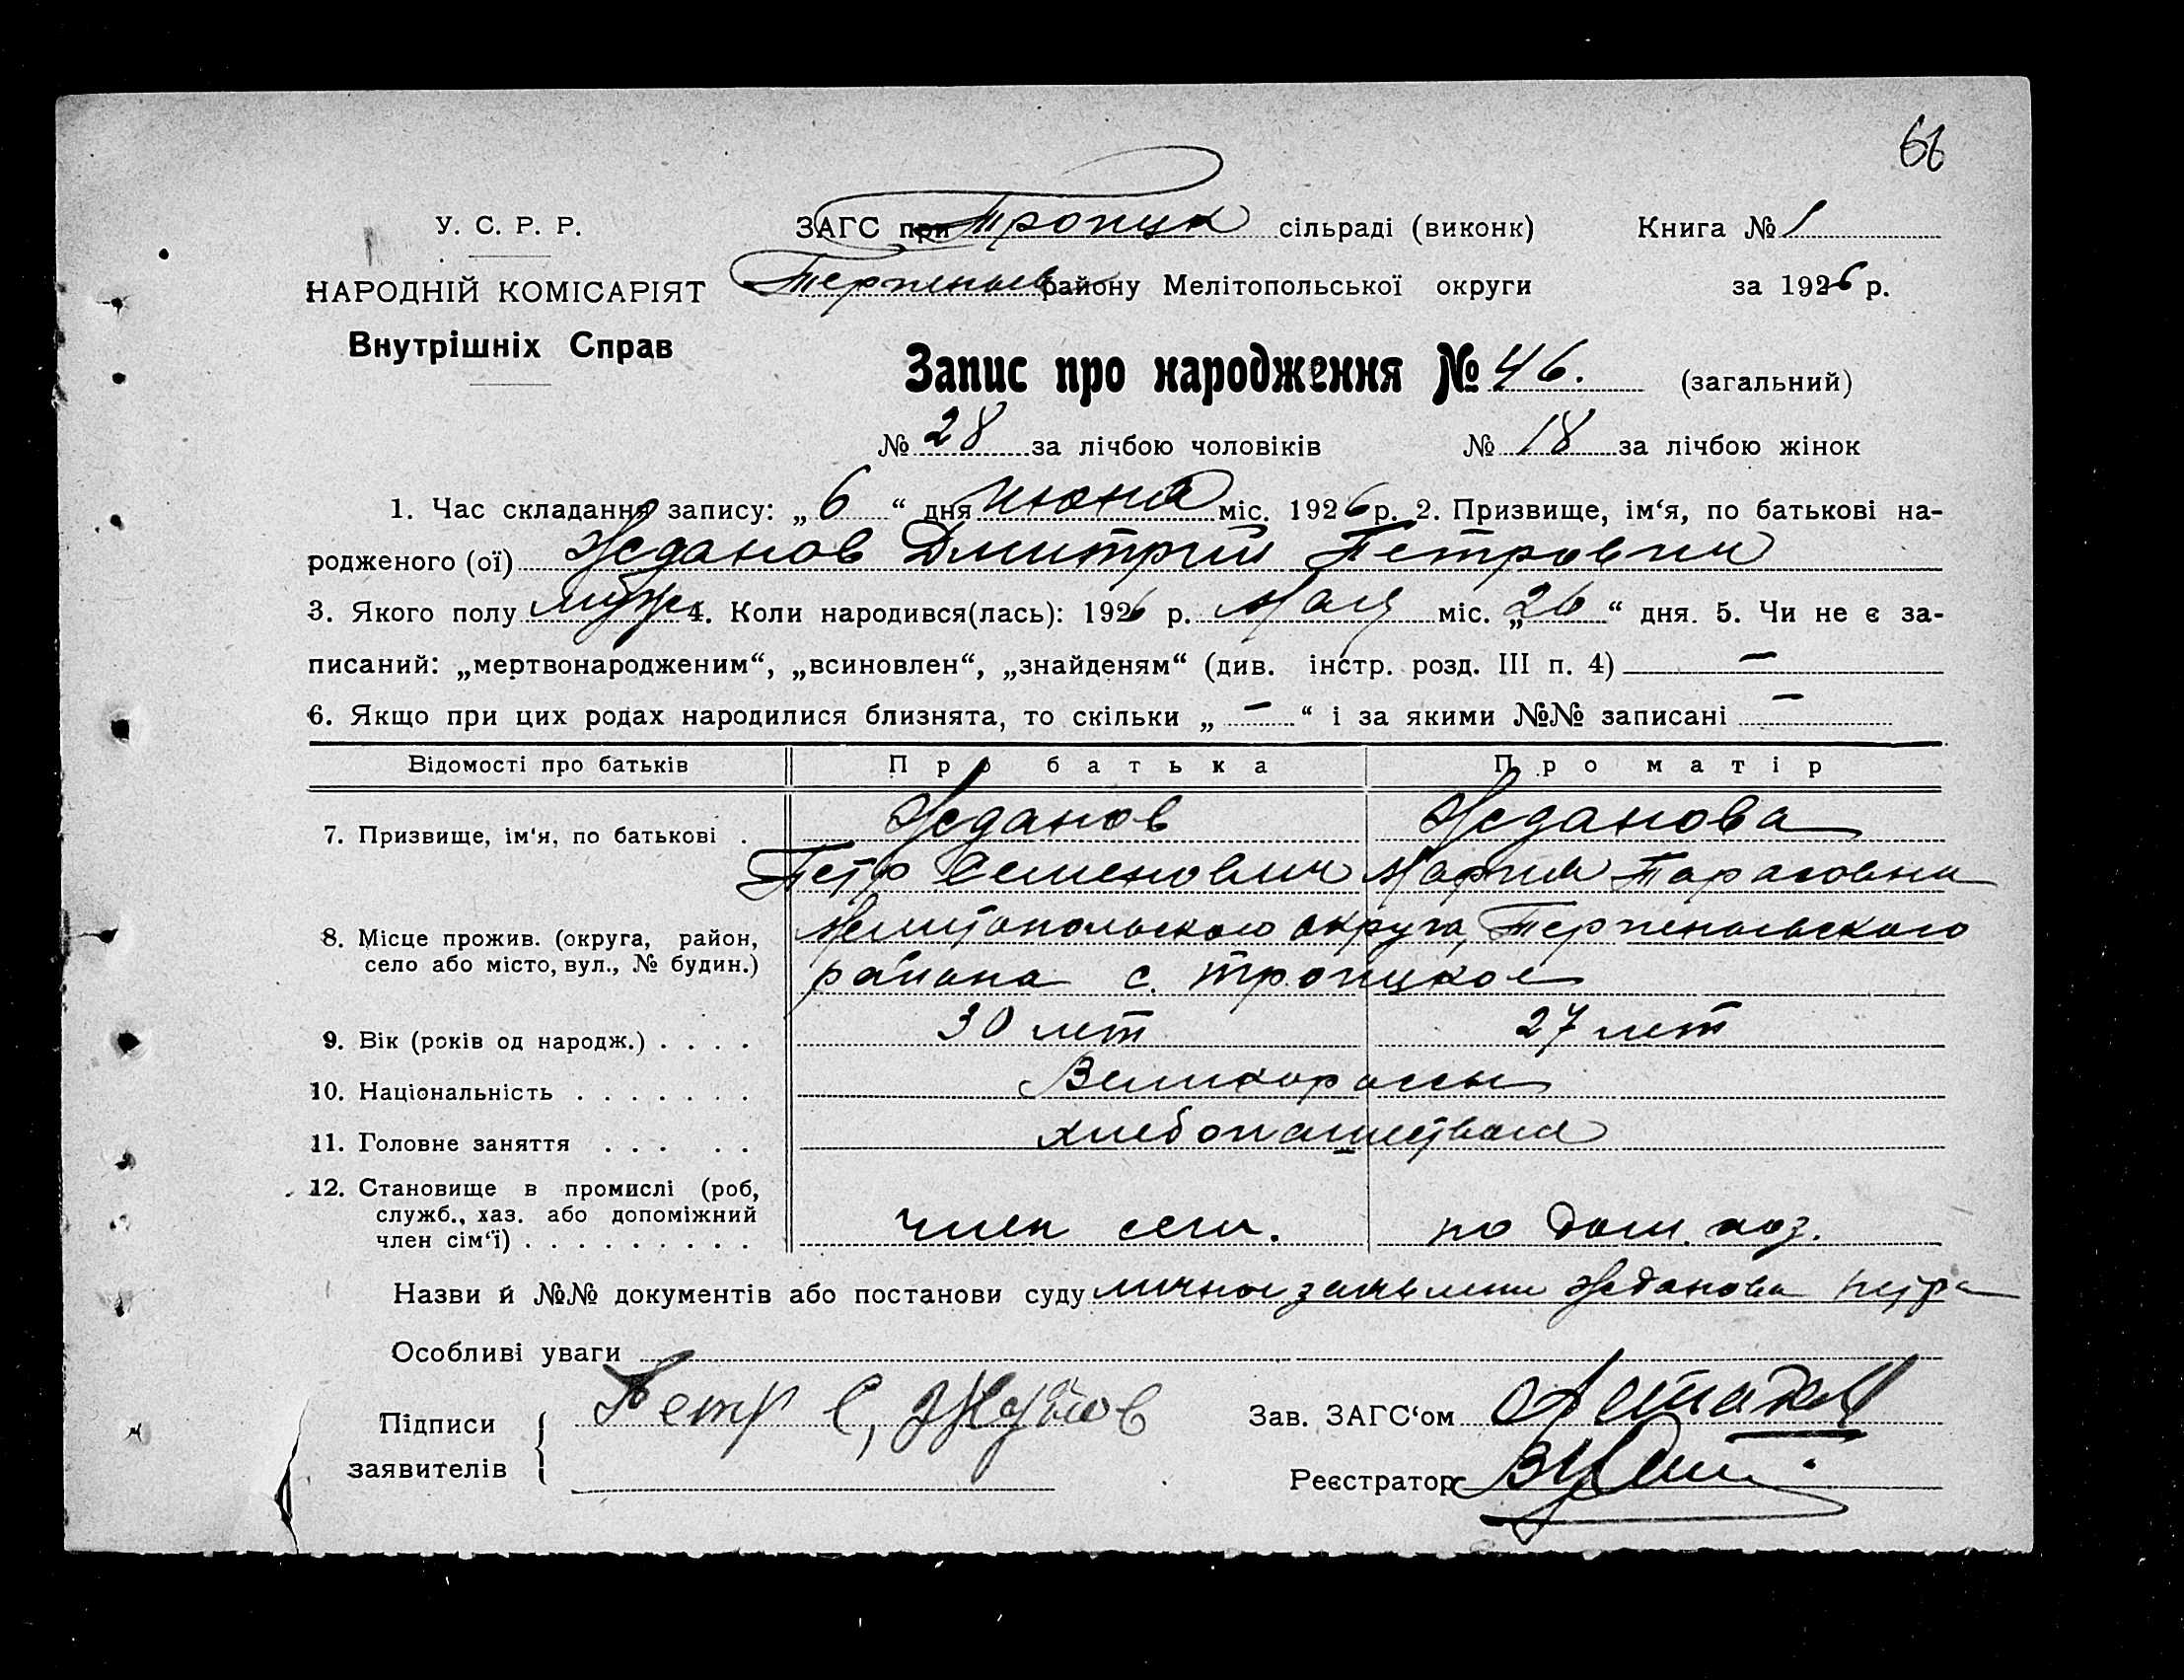 66
У. С. Р. Р.
ЗАГС при Троицк сільраді (виконк) Книга № 1
Терпеньев району Мелітопольської округи за 1926 р.
НАРОДНІЙ КОМІСАРІЯТ
Внутрішніх Справ
Запис про народження № 46. (загальний)
№ 28 за лічбою чоловіків № 18 за лічбою жінок
1. Час складання запису: „ 6 “ дня июня міс. 1926 р. 2. Призвище, ім‘я, по батькові на-
родженого (ої) Жданов Дмитрий Петрович
3. Якого полу муж. 4. Коли народився(лась): 1926 р. мая міс. „26“ дня. 5. Чи не є за-
писаний: „мертвонародженим“, „всиновлен“, „знайденям“ (див. інстр. розд. III п. 4) —
6. Якщо при цих родах народилися близнята, то скільки „ — “ і за якими №№ записані —
Відомості про батьків Про батька Про матір
7. Призвище, ім‘я, по батькові . Жданов Жданова
Петр Семенович Мария Тарасовна
8. Місце прожив. (округа, район, село або місто, вул., № будин.) Мелитопольского округа, Терпеньевского
района с. Троицкое
9. Вік (років од народж.) . . . . 30 лет 27 лет
10. Національність . . . . . . . Великороссы
11. Головне заняття . . . . . хлебопашеством
12. Становище в промислі (роб,
служб., хаз. або допоміжний
член сім‘ї) . . . . . . . . . член сем. по дом. хоз.
Назви й №№ документів або постанови суду личное заявлени Жданова Петра
Особливі уваги
Підписи
заявителів
Петр С, Жданов
Зав. ЗАГС‘ом
Реєстратор